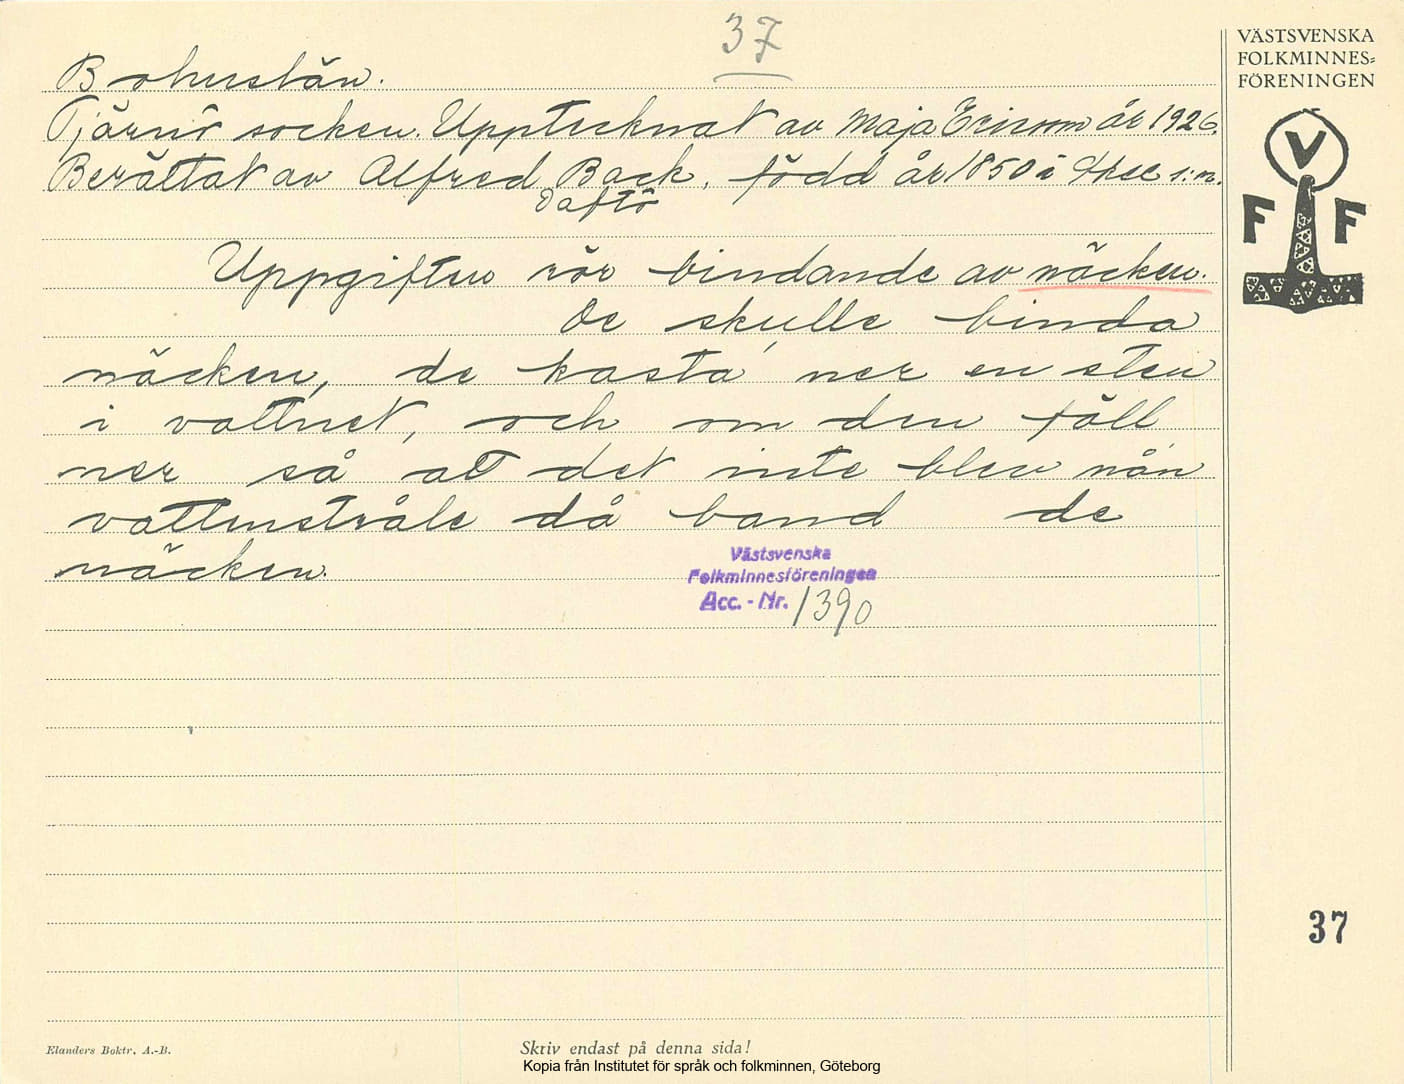 37
VÄSTSVENSKA
FOLKMINNES=
FÖRENINGEN
V
F F
Bohuslän.
Tjärnö socken. Upptecknat av Maja Ericson år 1926.
Berättat av Alfred Back, född år 1850 i Skee s:n.
Daftö
Uppgiften rör bindande av näcken.
De skulle binda
näcken, de kasta' ner en sten
i vattnet, och om den föll
ner så att det inte blev nån
vattenstråle då band de
näcken.
Västsvenska
Folkminnesföreningen
Acc. - Nr. 1390
37
Elanders Boktr. A.-B.
Skriv endast på denna sida!
Kopia från Institutet för språk och folkminnen, Göteborg